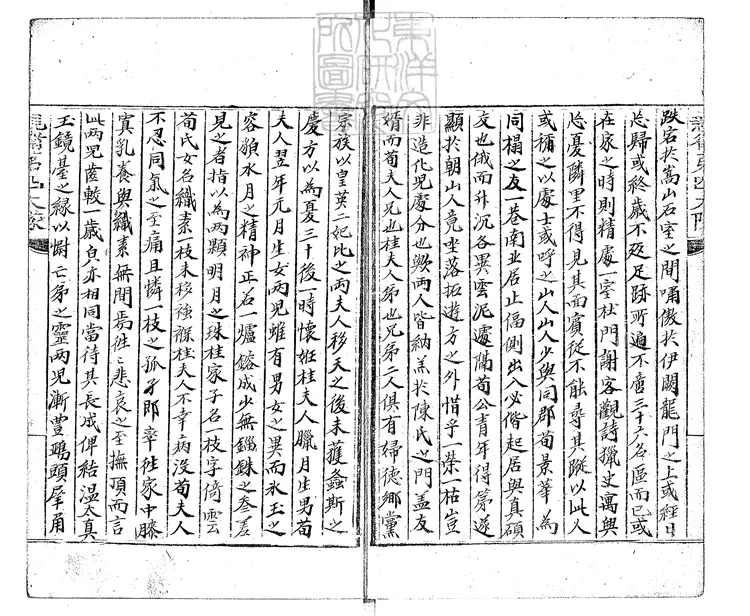 跌宕於嵩山石室之間嘯傲於伊闕龍門之上或經日
忘歸或終歲不返足跡所遍不啻三十六名區而已或
在家之時則精處一室杜門謝客觀詩獵史寓興
忘憂隣里不得見其面賓從不能尋其蹤以此人
或稱之以處士或呼之山人山人少與同郡荀景華為
同榻之友一巷南北居止偪側出入必偕起居與真碩
交也俄而升沉各異雲泥遽隔荀公青年得第遊
顯於朝山人竟坐落拓遊方之外惜乎一榮一枯豈
非造化兒處分也歟兩人皆納羔於陳氏之門盖友
婿而荀夫人兄也桂夫人弟也兄弟二人俱有婦德鄉黨
宗族以皇英二妃比之兩夫人移天之後未獲螽斯之
慶方以為憂三十後一時懷姙桂夫人臘月生男荀
夫人翌年元月生女兩兒雖有男女之異而氷玉之
容顏水月之精神正名一爐鎔成少無錙銖之叅差
見之者指以為兩顆明月之珠桂家子名枝字倚雲
荀氏女名織素一枝未移襁褓桂夫人不幸病沒荀夫人
不忍同氣之至痛且憐一枝之孤孑即率往家中勝
寘乳養與織素無間焉徃徃悲哀之至撫頂而言
此兩兒齒較一歲皃亦相同當待其長成俾結溫太真
玉鏡臺之緣以慰亡弟之靈兩兒漸豊鵶頭犀角